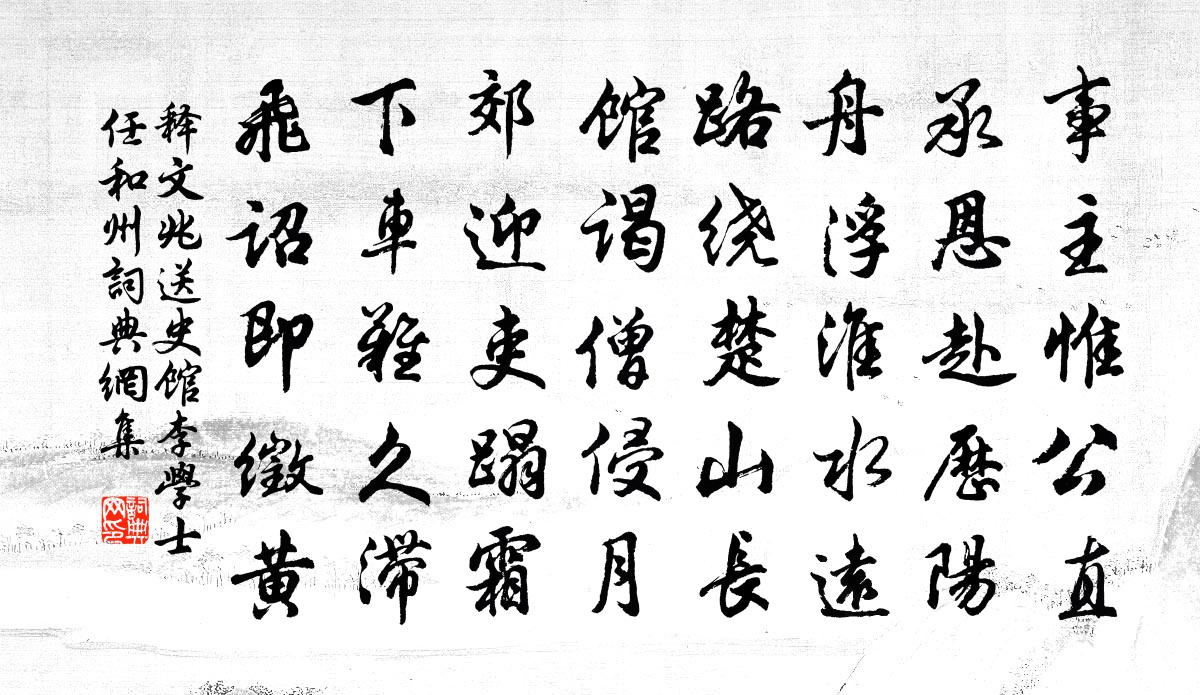 事主惟公直
承恩赴歷陽
舟浮淮水遠
路繞楚山長
館謁僧侵月
郊迎吏蹋霜
下車難久滯
飛詔即徵黃
釋文兆送史館李學士
任和州詞典網集
詞典
网印